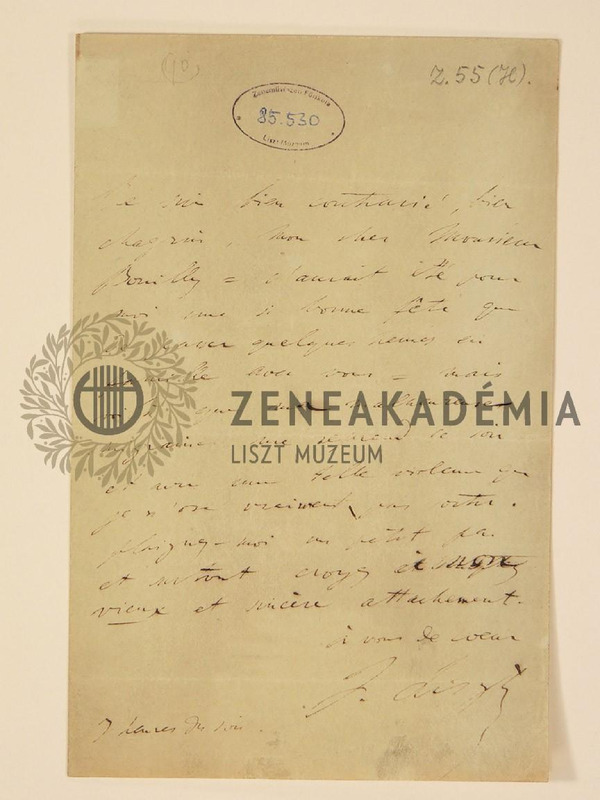 (10)
Z. 55 (H).
Zeneművészeti Főiskola
85.530
Liszt Múzeum
Je suis bien contrarié, bien
chagrin, mon cher Monsieur
Bouilly = c'aurait été pour
moi une si bonne fête que
de passer quelques heures en
famille avec vous = mais
que ma malheureuse
migraine me reprend ce soir
et avec une telle violence que
je n'ose vraiment pas
plaignez-moi un petit peu
et surtout croyez à
vieux et sincère attachement.
à vous de cœur
F. Liszt
7 heures du soir.
ZENEAKADÉMIA
LISZT MÚZEUM